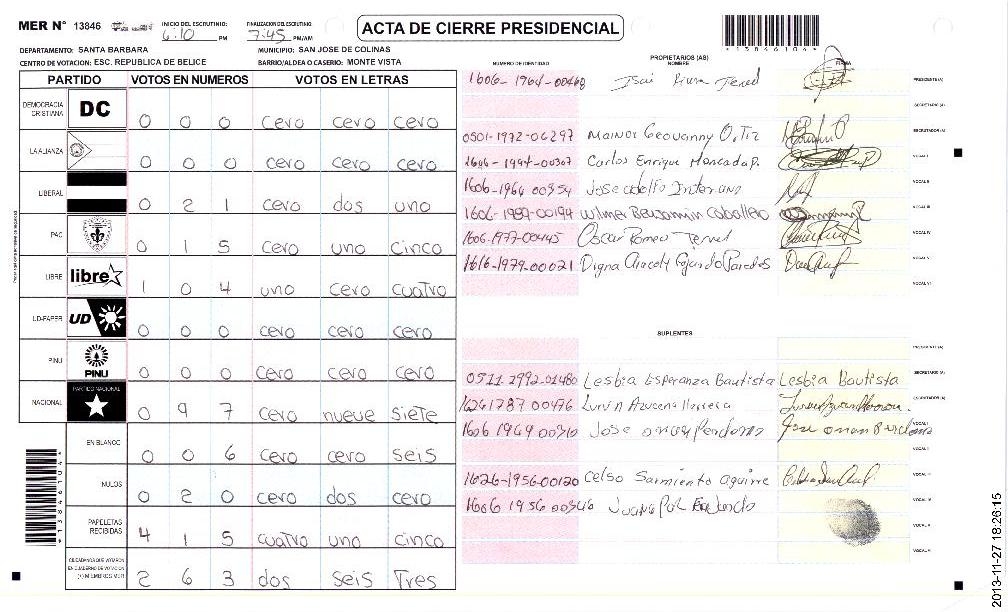 MER N° 13846 INICIO DEL ESCRUTINIO: 6:10 PM FINALIZACION DEL ESCRUTINIO 7:45 PM/AM
ACTA DE CIERRE PRESIDENCIAL
*13846104*
DEPARTAMENTO: SANTA BARBARA MUNICIPIO: SAN JOSE DE COLINAS
CENTRO DE VOTACION: ESC. REPUBLICA DE BELICE BARRIO/ALDEA O CASERIO: MONTE VISTA
PARTIDO VOTOS EN NUMEROS VOTOS EN LETRAS
DEMOCRACIA CRISTIANA DC 0 0 0 cero cero cero
LA ALIANZA 0 0 0 cero cero cero
LIBERAL 0 2 1 cero dos uno
PAC 0 1 5 cero uno cinco
LIBRE libre 1 0 4 uno cero cuatro
UD-FAPER UD 0 0 0 cero cero cero
PINU PINU 0 0 0 cero cero cero
NACIONAL PARTIDO NACIONAL 0 9 7 cero nueve siete
EN BLANCO 0 0 6 cero cero seis
NULOS 0 2 0 cero dos cero
PAPELETAS RECIBIDAS 4 1 5 cuatro uno cinco
CIUDADANOS QUE VOTARON EN CUADERNO DE VOTACION (+) MIEMBROS MER 2 6 3 dos seis Tres
*13846104*
PROPIETARIOS (AS)
NUMERO DE IDENTIDAD NOMBRE FIRMA
1606-1964-00468 Isai PRESIDENTE(A)
SECRETARIO (A)
0501-1972-06297 Mainor Geovanny ESCRUTADOR (A)
1606-1994-00307 Carlos Enrique Moncada P. VOCAL I
1606-1964 00354 Jose adolfo Interiano VOCAL II
1606-1987-00194 Wilmer Benjamin Caballero VOCAL III
1606-1977-00445 Oscar Romeo VOCAL IV
1616-1979-00021 Digna Aracely Fajardo Paredes VOCAL V
VOCAL VI
SUPLENTES
PRESIDENTE (A)
0511 1992-01480 Lesbia Esperanza Bautista Lesbia Bautista SECRETARIO (A)
Azucena Herrera ESCRUTADOR (A)
1606 1969 00310 Jose Jose VOCAL I
VOCAL II
1626-1956-00120 Celso Sarmiento aguirre VOCAL III
1606 1956 00346 VOCAL IV
VOCAL V
VOCAL VI
2013-11-27 18:26:15